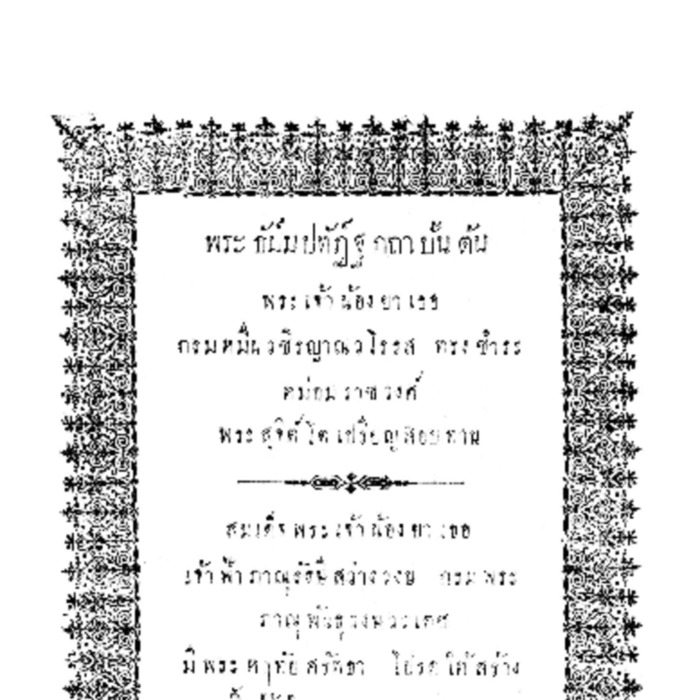 พระ ธัมมปทัฏฐ กถา บั้น ต้น
พระ เจ้า น้อง ยา เธอ
กรม หมื่น วชิรญาณ วโรรส ทรง ชำระ
หม่อม ราช วงศ์
พระ สุจิตโต เปรียญ สอบ ทาน
สมเด็จ พระ เจ้า น้อง ยา เธอ
เจ้า ฟ้า ภาณุรังษี สว่างวงษ กรม พระ
ภาณุ พันธุวงษ วรเดช
มี พระ หฤทัย ศรัทธา โปรด ให้ สร้าง